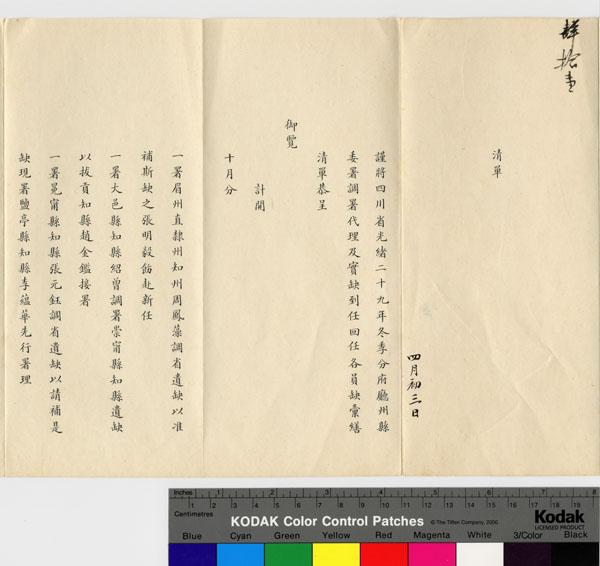 肆拾壹
清單
四月初三日
謹將四川省光緒二十九年冬季分府廳州縣
委署調署代理及實缺到任回任各員缺彙繕
清單恭呈
御覽
計開
十月分
一署眉州直隸州知州周鳳藻調省遺缺以准
補斯缺之張明毅飭赴新任
一署大邑縣知縣紹曾調署崇甯縣知縣遺缺
以拔貢知縣趙金鑑接署
一署冕甯縣知縣張元鈺調省遺缺以請補是
缺現署鹽亭縣知縣李蘊華先行署理
Inches 1 2 3 4 5 6 7 8
Centimetres 1 2 3 4 5 6 7 8 9 10 11 12 13 14 15 16 17 18 19
KODAK Color Control Patches © The Tiffen Company, 2000 Kodak
LICENSED PRODUCT
Blue Cyan Green Yellow Red Magenta White 3/Color Black